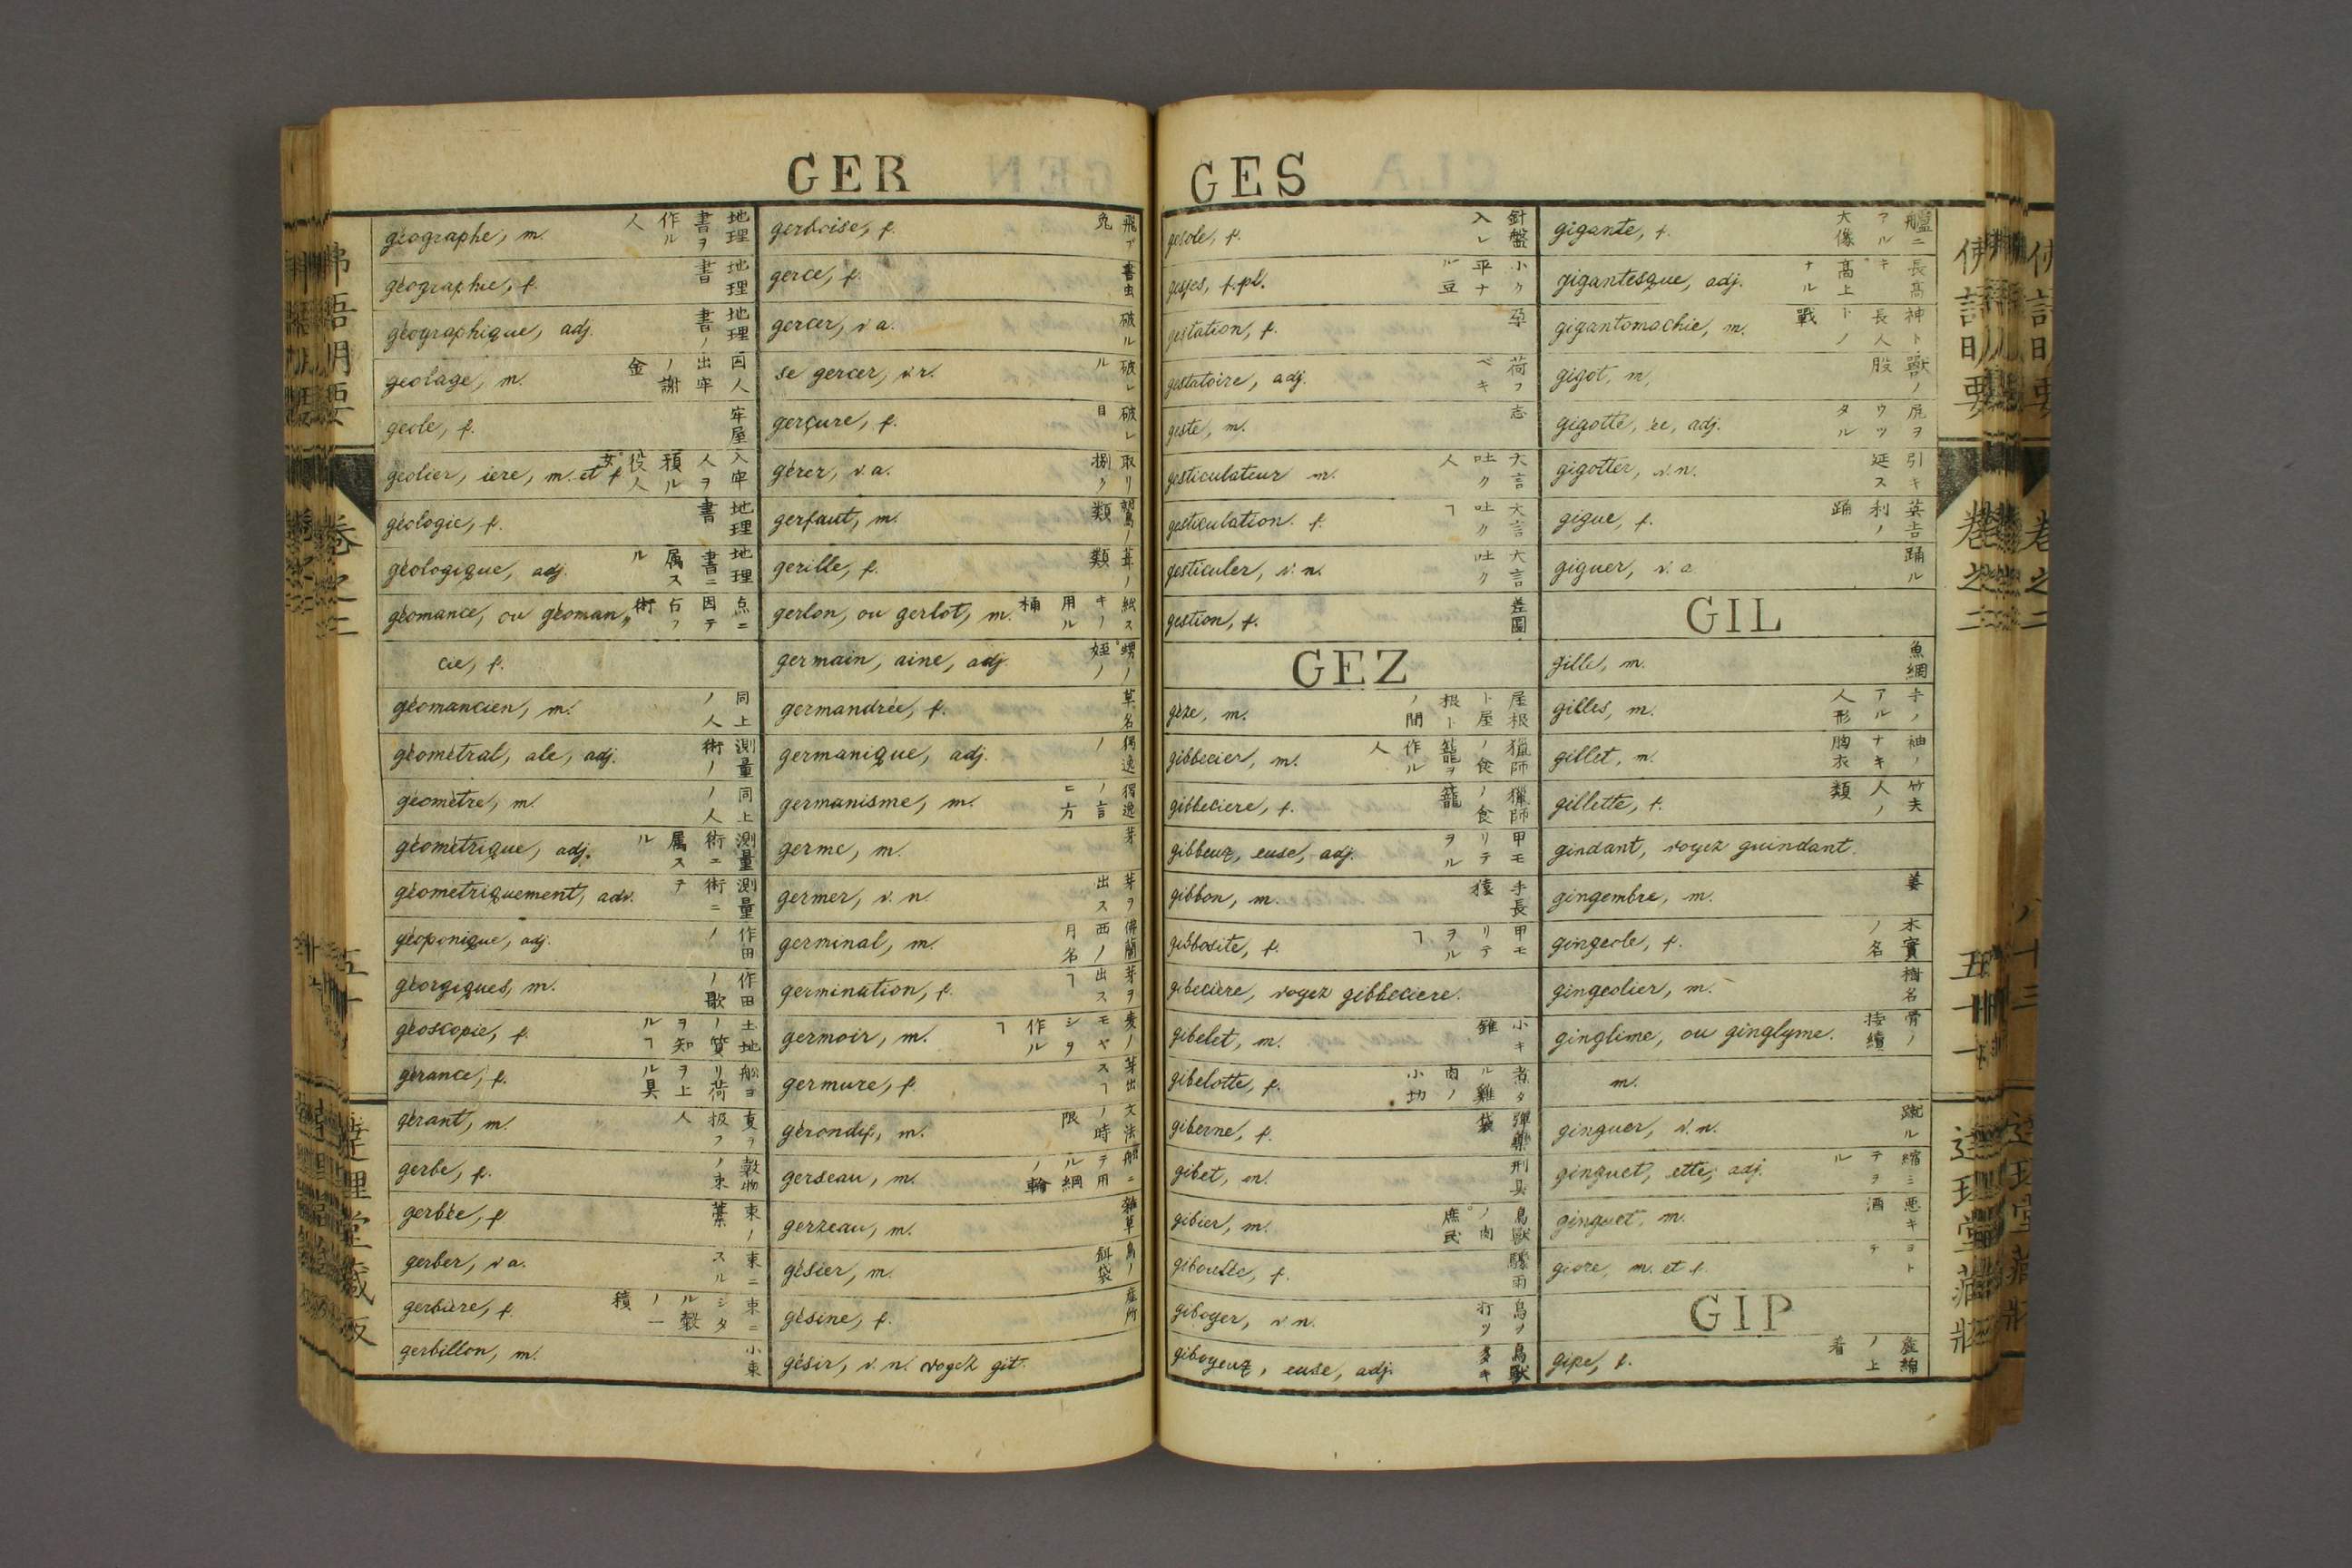 GER
géographe, m. 地理書ヲ作ル人
géographie, f. 地理書
géographique, adj. 地理書ノ
geolage, m. 囚人出牢ノ謝金
geole, f. 牢屋
geolier, iere, m. et f. 入牢人ヲ預ル役人
géologie, f. 地理書
géologique, adj. 地理書ニ属スル
géomance, ou géoman,, 点ニ因テ占フ術
cie, f.
géomancien, m. 同上ノ人
géométral, ale, adj. 測量術ノ
géomètre, m. 同上ノ人
géométrique, adj. 測量術ニ属スル
géometriquement, adv. 測量術ニテ
géoponique, adj. 作田ノ
géorgiques, m. 作田ノ歌
géoscopie, f. 土地ノ質ヲ知ルヿ
gérance, f.
gérant, m.
gerbe, f. 穀物ノ束
gerbée, f. 束ノ藁
gerber, v a. 束ニスル
gerbière, f. 束ニシタル穀ノ一積
gerbillon, m. 小束
gerboise, f. 飛ブ兎
gerce, f. 書虫
gercer, v a. 破ル
se gercer, v.r. 破レル
gerçure, f. 破レ目
gérer, v.a. 取リ捌ク
gerfaut, m.
gerille, f. 茸ノ類
gerlon, ou gerlot, m. 紙スキノ用ル桶
germain, aine, adj. 甥姪ノ
germandrée, f. 草名
germanique, adj. 獨逸ノ
germanisme, m. 獨逸ノ言方
germe, m. 芽
germer, v. n. 芽ヲ出ス
germinal, m. 佛蘭西ノ月名
germination, f. 芽ヲ出スヿ
germoir, m. 麦ノモヤシヲ作ルヿ
germure, f. 芽出スヿ
gérondif, m. 文法ノ時限
gerseau, m. 舶ニテ用ル綱ノ輪
gerzeau, m. 雜草
gésier, m. 鳥ノ餌袋
gésine, f. 産所
gésir, v. n. voyez git.
GES
gesole, f. 針盤入レ
gesses, f. pl. 小ク平ナル豆
gestation, f. 孕
gestatoire, adj. 荷フベキ
geste, m. 志
gesticulateur m. 大言吐ク人
gesticulation. f. 大言吐クヿ
gesticuler, v. n. 大言吐ク
gestion, f. 差圖
GEZ
gèze, m. 屋根ト屋根トノ間
gibbecier, m. 獵師ノ食籠ヲ作ル人
gibbeciere, f. 獵師ノ食籠
gibbeux, euse, adj. 甲モリテヲル
gibbon, m. 手長猿
gibbosite, f. 甲モリテヲルヿ
gibecière, voyez gibbeciere.
gibelet, m. 小キ錐
gibelotte, f. 煮タル雞肉ノ小切
giberne, f. 彈藥袋
gibet, m. 刑具
gibier, m. 鳥獸ノ肉 庶民
giboulée, f. 驟雨
giboyer, v. n. 鳥ヲ打ツ
giboyeux, euse, adj. 鳥獸多キ
gigante, f. 艫ニアル大像
gigantesque, adj. 長髙キ 髙上ナル
gigantomachie, m. 神ト長人トノ戰
gigot, m, 獸ノ股
gigotté, ée, adj.
gigotter, v. n. 引キ延ス
gigue, f. 英吉利ノ踊
giguer, v. a 踊ル
GIL
gille, m. 魚網
gilles, m. 手ノアル人形
gillet, m. 袖ノナキ胸衣
gillette, f.
gindant, voyez guindant.
gingembre, m. 姜
gingeole, f. 木實ノ名
gingeolier, m. 樹名
ginglime, ou ginglyme. 骨ノ接續
m.
ginguer, v. n. 蹴ル
ginguet, ette, adj. 縮ミテヲル
ginguet, m. 悪キ酒
giore, m. et f.
GIP
gipe, f.
卷之二
五十一
達理堂藏版